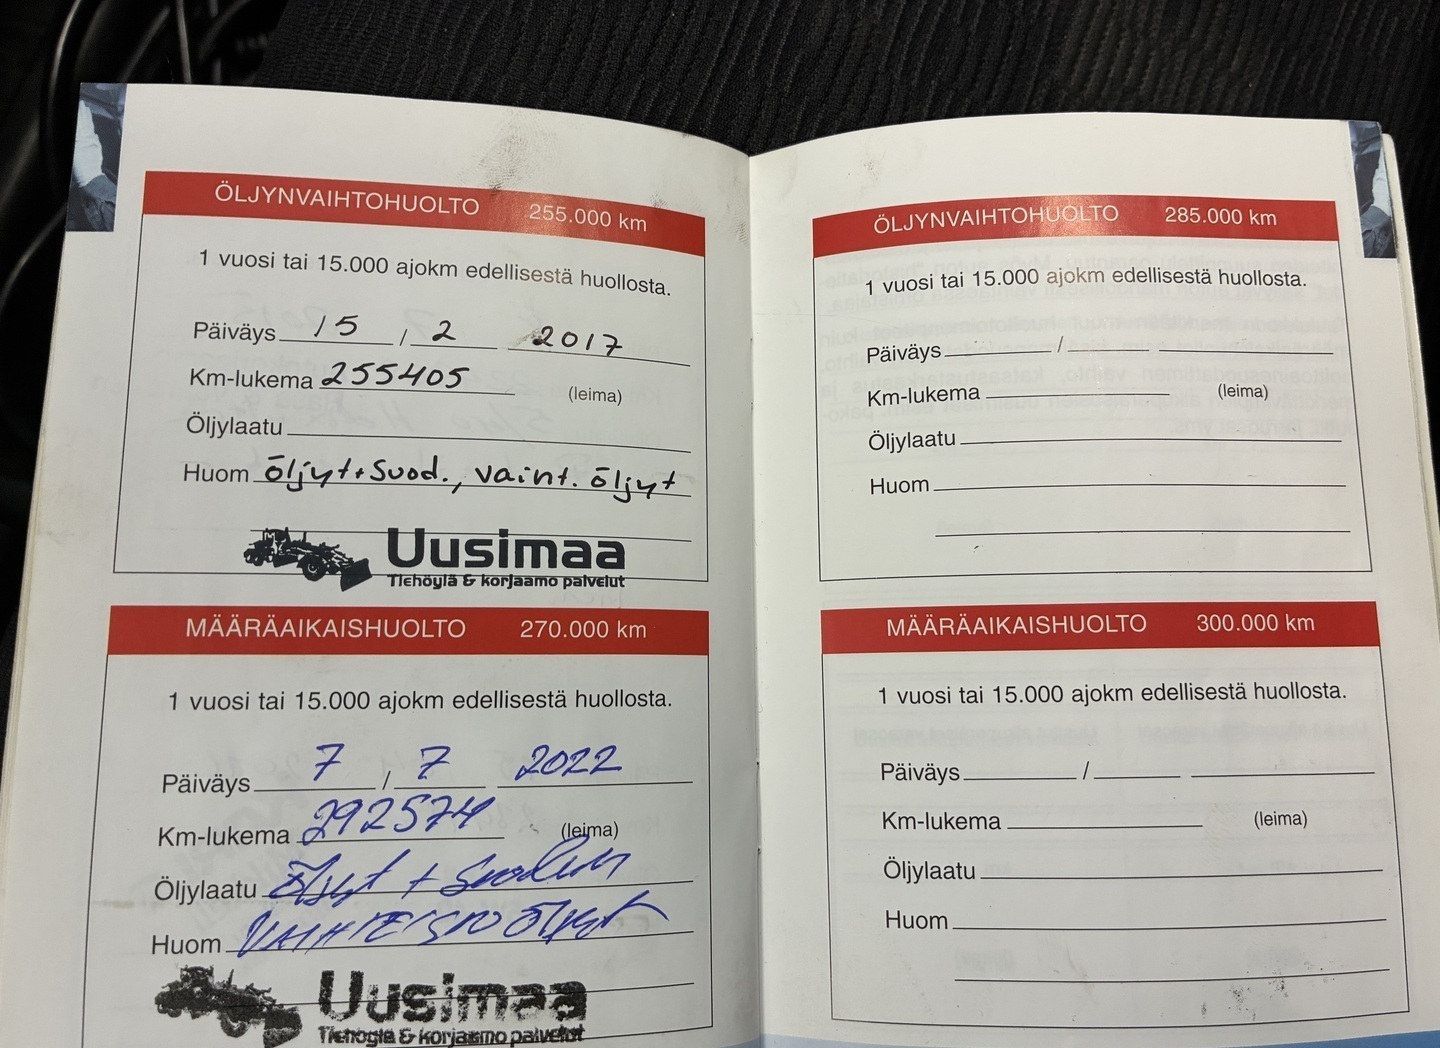 ÖLJYNVAIHTOHUOLTO 255.000 km
1 vuosi tai 15.000 ajokm edellisestä huollosta.
Päiväys 15 / 2 2017
Km-lukema 255405 (leima)
Öljylaatu
Huom öljyt + suod., vaiht. öljyt
Uusimaa
Tiehöylä & korjaamo palvelut
MÄÄRÄAIKAISHUOLTO 270.000 km
1 vuosi tai 15.000 ajokm edellisestä huollosta.
Päiväys 7 / 7 2022
Km-lukema 292574 (leima)
Öljylaatu Öljyt + suodatin
Huom VAIHTEISTO Öljyt
Uusimaa
Tiehöylä & korjaamo palvelut
ÖLJYNVAIHTOHUOLTO 285.000 km
1 vuosi tai 15.000 ajokm edellisestä huollosta.
Päiväys /
Km-lukema (leima)
Öljylaatu
Huom
MÄÄRÄAIKAISHUOLTO 300.000 km
1 vuosi tai 15.000 ajokm edellisestä huollosta.
Päiväys /
Km-lukema (leima)
Öljylaatu
Huom